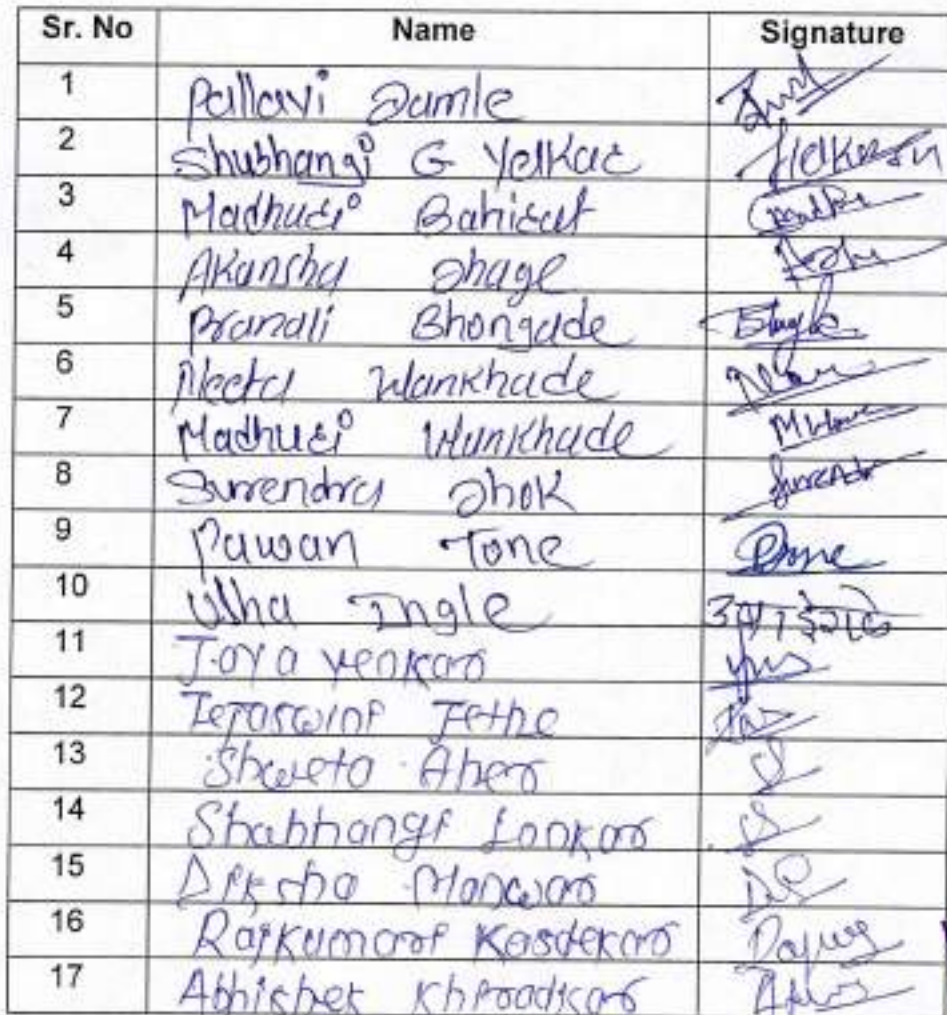 Sr. No Name Signature
1 Pallavi Damle
2 Shubhangi G Yelkar
3 Madhuri Bahirat
4 Akansha Dhage
5 Pranali Bhongade
6 Neeta Wankhade
7 Madhuri Wankhade
8 Surrendra Dhok Surrendr
9 Pawan Tone
10 Usha Ingle
11 Jaya Yenkar
12 Tejaswini Jethe
13 Shweta Aher
14 Shabhangi Lonkar
15 Diksha Manwar
16 Rajkumari Kasdekar
17 Abhishek Khiradkar